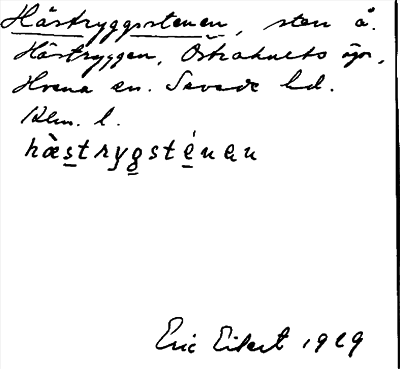 Hästryggsstenen, sten å.
Hästryggen, Östrahults ägor,
Hvena sn. Sevede hd.
Klm. l.
hæ̀stryg sténen
Eric Eilert 1929